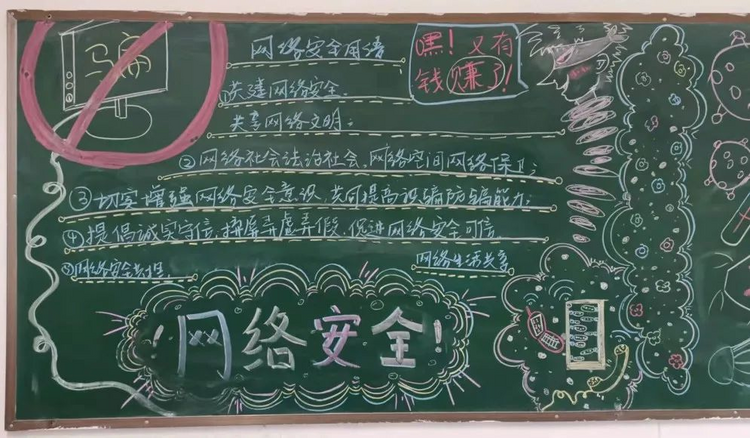 网络安全用语
嘿！又有
钱赚了！
共建网络安全.
共享网络文明.
②网络社会法治社会、网络空间网络保
③切实增强网络安全意识、共同提高识骗防骗能力.
④提倡诚实守信、摒弃弄虚弄假、促进网络安全可信
⑤网络安全共担.
网络生活共享
网络安全！